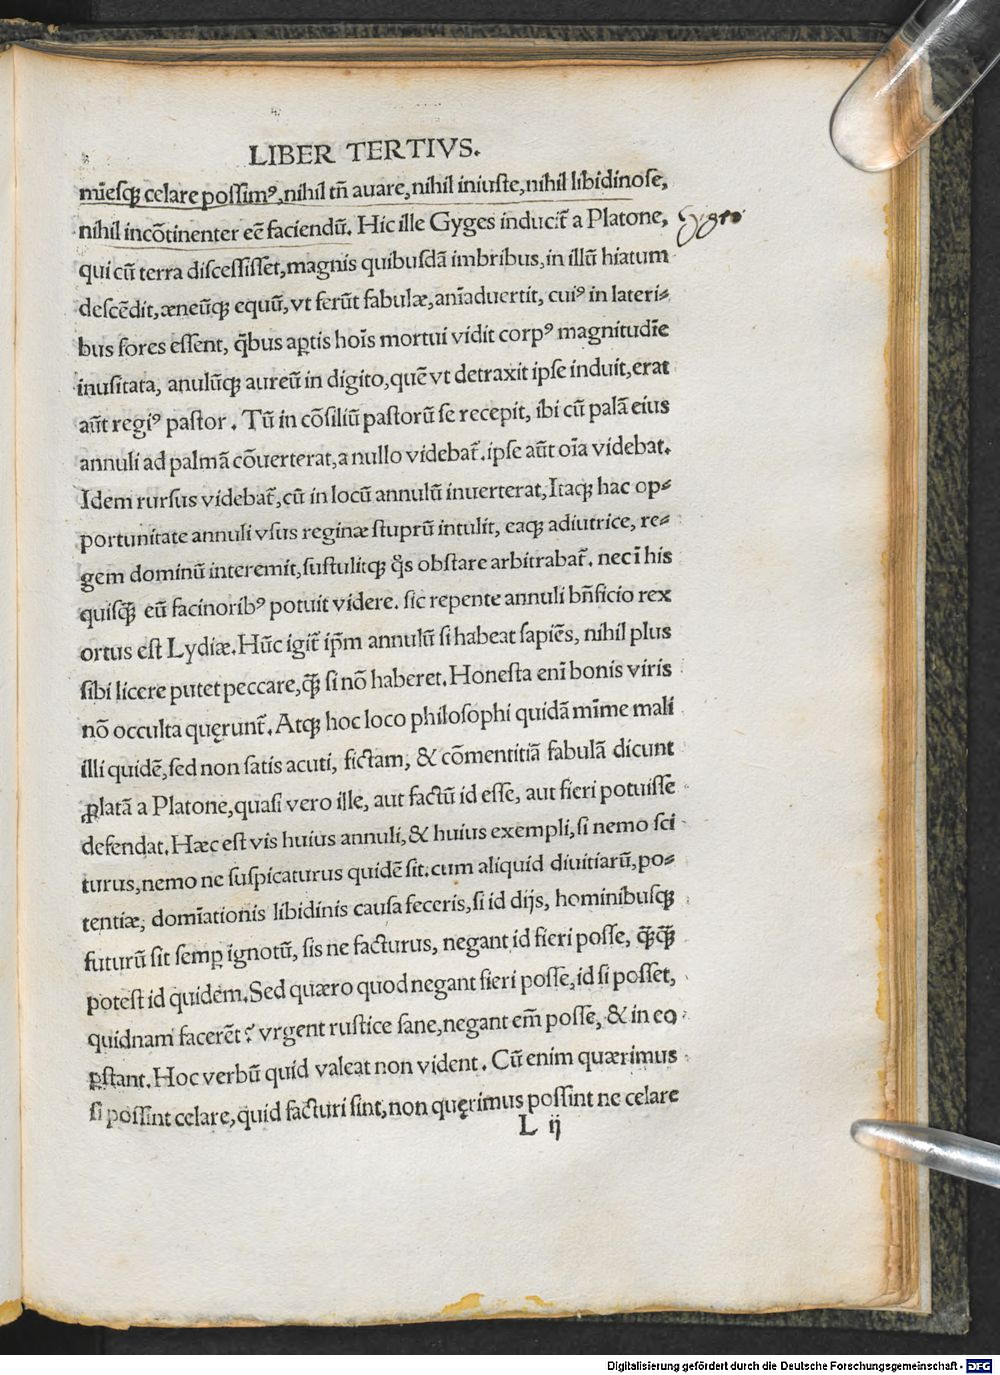 LIBER TERTIVS.
mīesq̃ celare possimꝰ, nihil tñ auare, nihil iniuste, nihil libidinose,
nihil incōtinenter eē faciendū. Hic ille Gyges inducit̄ a Platone,
Gyges
qui cū terra discessisset, magnis quibusdā imbribus, in illū hiatum
descēdit, æneūq̃ equū, vt ferūt fabulæ, aniaduertit, cuiꝰ in lateri-
bus fores essent, q̄bus aꝑtis hoīs mortui vidit corpꝰ magnitudīe
inusitata, anulūq̃ aureū in digito, quē vt detraxit ipse induit, erat
aūt regiꝰ pastor. Tū in cōsiliū pastorū se recepit, ibi cū palā eius
annuli ad palmā cōuerterat, a nullo videbat̄. ipse aūt oīa videbat.
Idem rursus videbat̄, cū in locū annulū inuerterat, Itaq̃ hac op-
portunitate annuli vsus reginæ stuprū intulit, eaq̃ adiutrice, re-
gem dominū interemit, sustulitq̃ q̄s obstare arbitrabat̄. nec ī his
quisq̃ eū facinoribꝰ potuit videre. sic repente annuli bñficio rex
ortus est Lydiæ. Hūc igit̄ ip̄m annulū si habeat sapiēs, nihil plus
sibi licere putet peccare, q̃ si nō haberet. Honesta enī bonis viris
nō occulta quęrunt̄. Atq̃ hoc loco philosophi quidā mīme mali
illi quidē, sed non satis acuti, fictam, & cōmentitiā fabulā dicunt
ꝓlatā a Platone, quasi vero ille, aut factū id esse, aut fieri potuisse
defendat. Hæc est vis huius annuli, & huius exempli, si nemo sci
turus, nemo ne suspicaturus quidē sit. cum aliquid diuitiarū, po-
tentiæ, domīationis libidinis causa feceris, si id dijs, hominibusq̃
futurū sit semꝑ ignotū, sis ne facturus, negant id fieri posse, q̃q̃
potest id quidem. Sed quæro quod negant fieri posse, id si posset,
quidnam facerēt? vrgent rustice sane, negant em̄ posse, & in eo
ꝑstant. Hoc verbū quid valeat non vident. Cū enim quærimus
si possint celare, quid facturi sint, non quęrimus possint ne celare
L ij
Digitalisierung gefördert durch die Deutsche Forschungsgemeinschaft - DFG